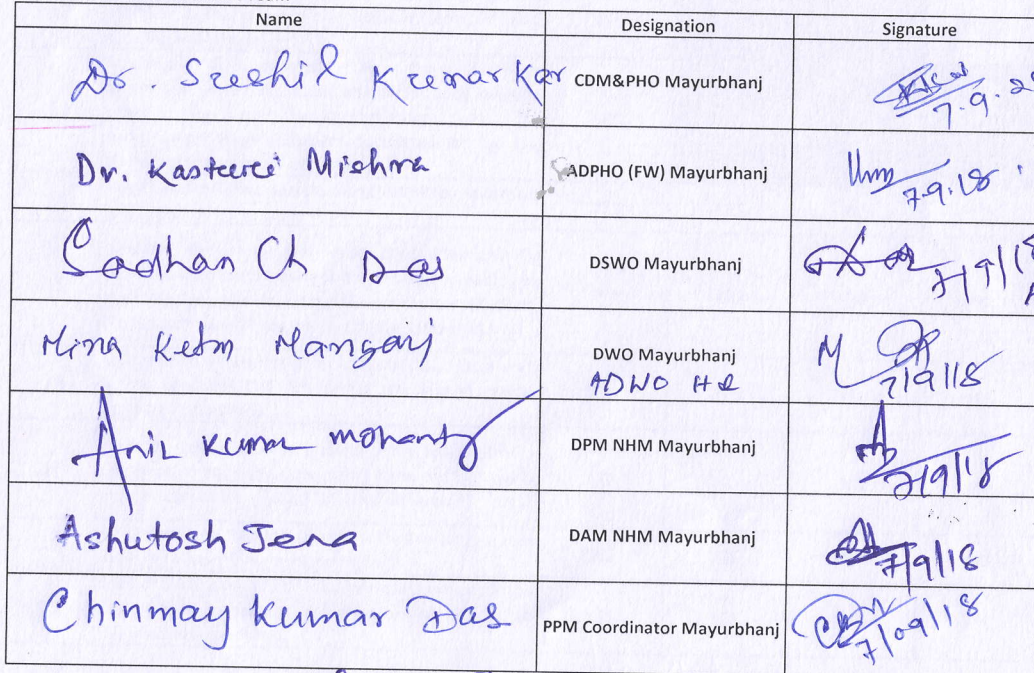 Name Designation Signature
Dr. Sushil Kumar Kar CDM&PHO Mayurbhanj 7.9.
Dr. Kasturi Mishra ADPHO (FW) Mayurbhanj 7.9.18
Sadhan Ch Das DSWO Mayurbhanj 7/9/18
Mina Ketn Mangaraj DWO Mayurbhanj M 7/9/18
ADWO HQ
Anil Kumar Mohanty DPM NHM Mayurbhanj 7/9/18
Ashutosh Jena DAM NHM Mayurbhanj 7/9/18
Chinmay Kumar Das PPM Coordinator Mayurbhanj 7/09/18